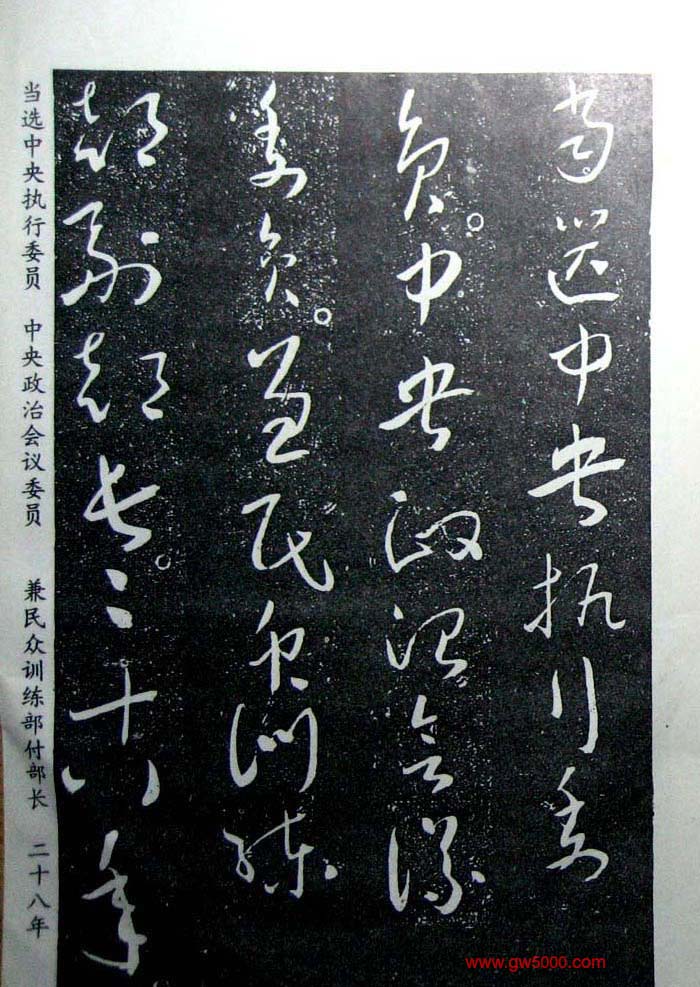 當選中央執行委
員。中央政治會議
委員。兼民眾訓練
部副部長。二十八年
当选中央执行委员 中央政治会议委员 兼民众训练部付部长 二十八年
www.gw5000.com